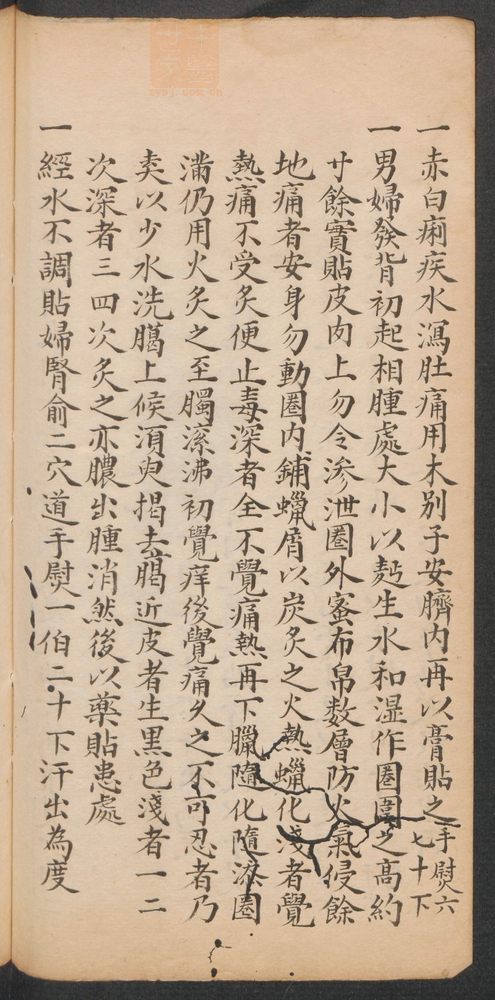 一赤白痢疾水瀉肚痛用木別子安臍內再以膏貼之手熨六七十下
一男婦發背初起相腫處大小以麪生水和湿作圈圍之高約
寸餘實貼皮肉上勿令滲泄圈外蜜布帛数層防火氣侵餘
地痛者安身勿動圈內鋪蠟屑以炭炙之火熱蠟化淺者覺
熱痛不受炙便止毒深者全不覺痛熱再下臘隨化隨添圈
滿仍用火炙之至臅滚沸初覺痒後覺痛久之不可忍者乃
去以少水洗臈上候湏臾揭去臈近皮者生黑色淺者一二
次深者三四次炙之亦膿出腫消然後以藥貼患處
一經水不調貼婦腎俞二穴道手熨一伯二十下汗出為度